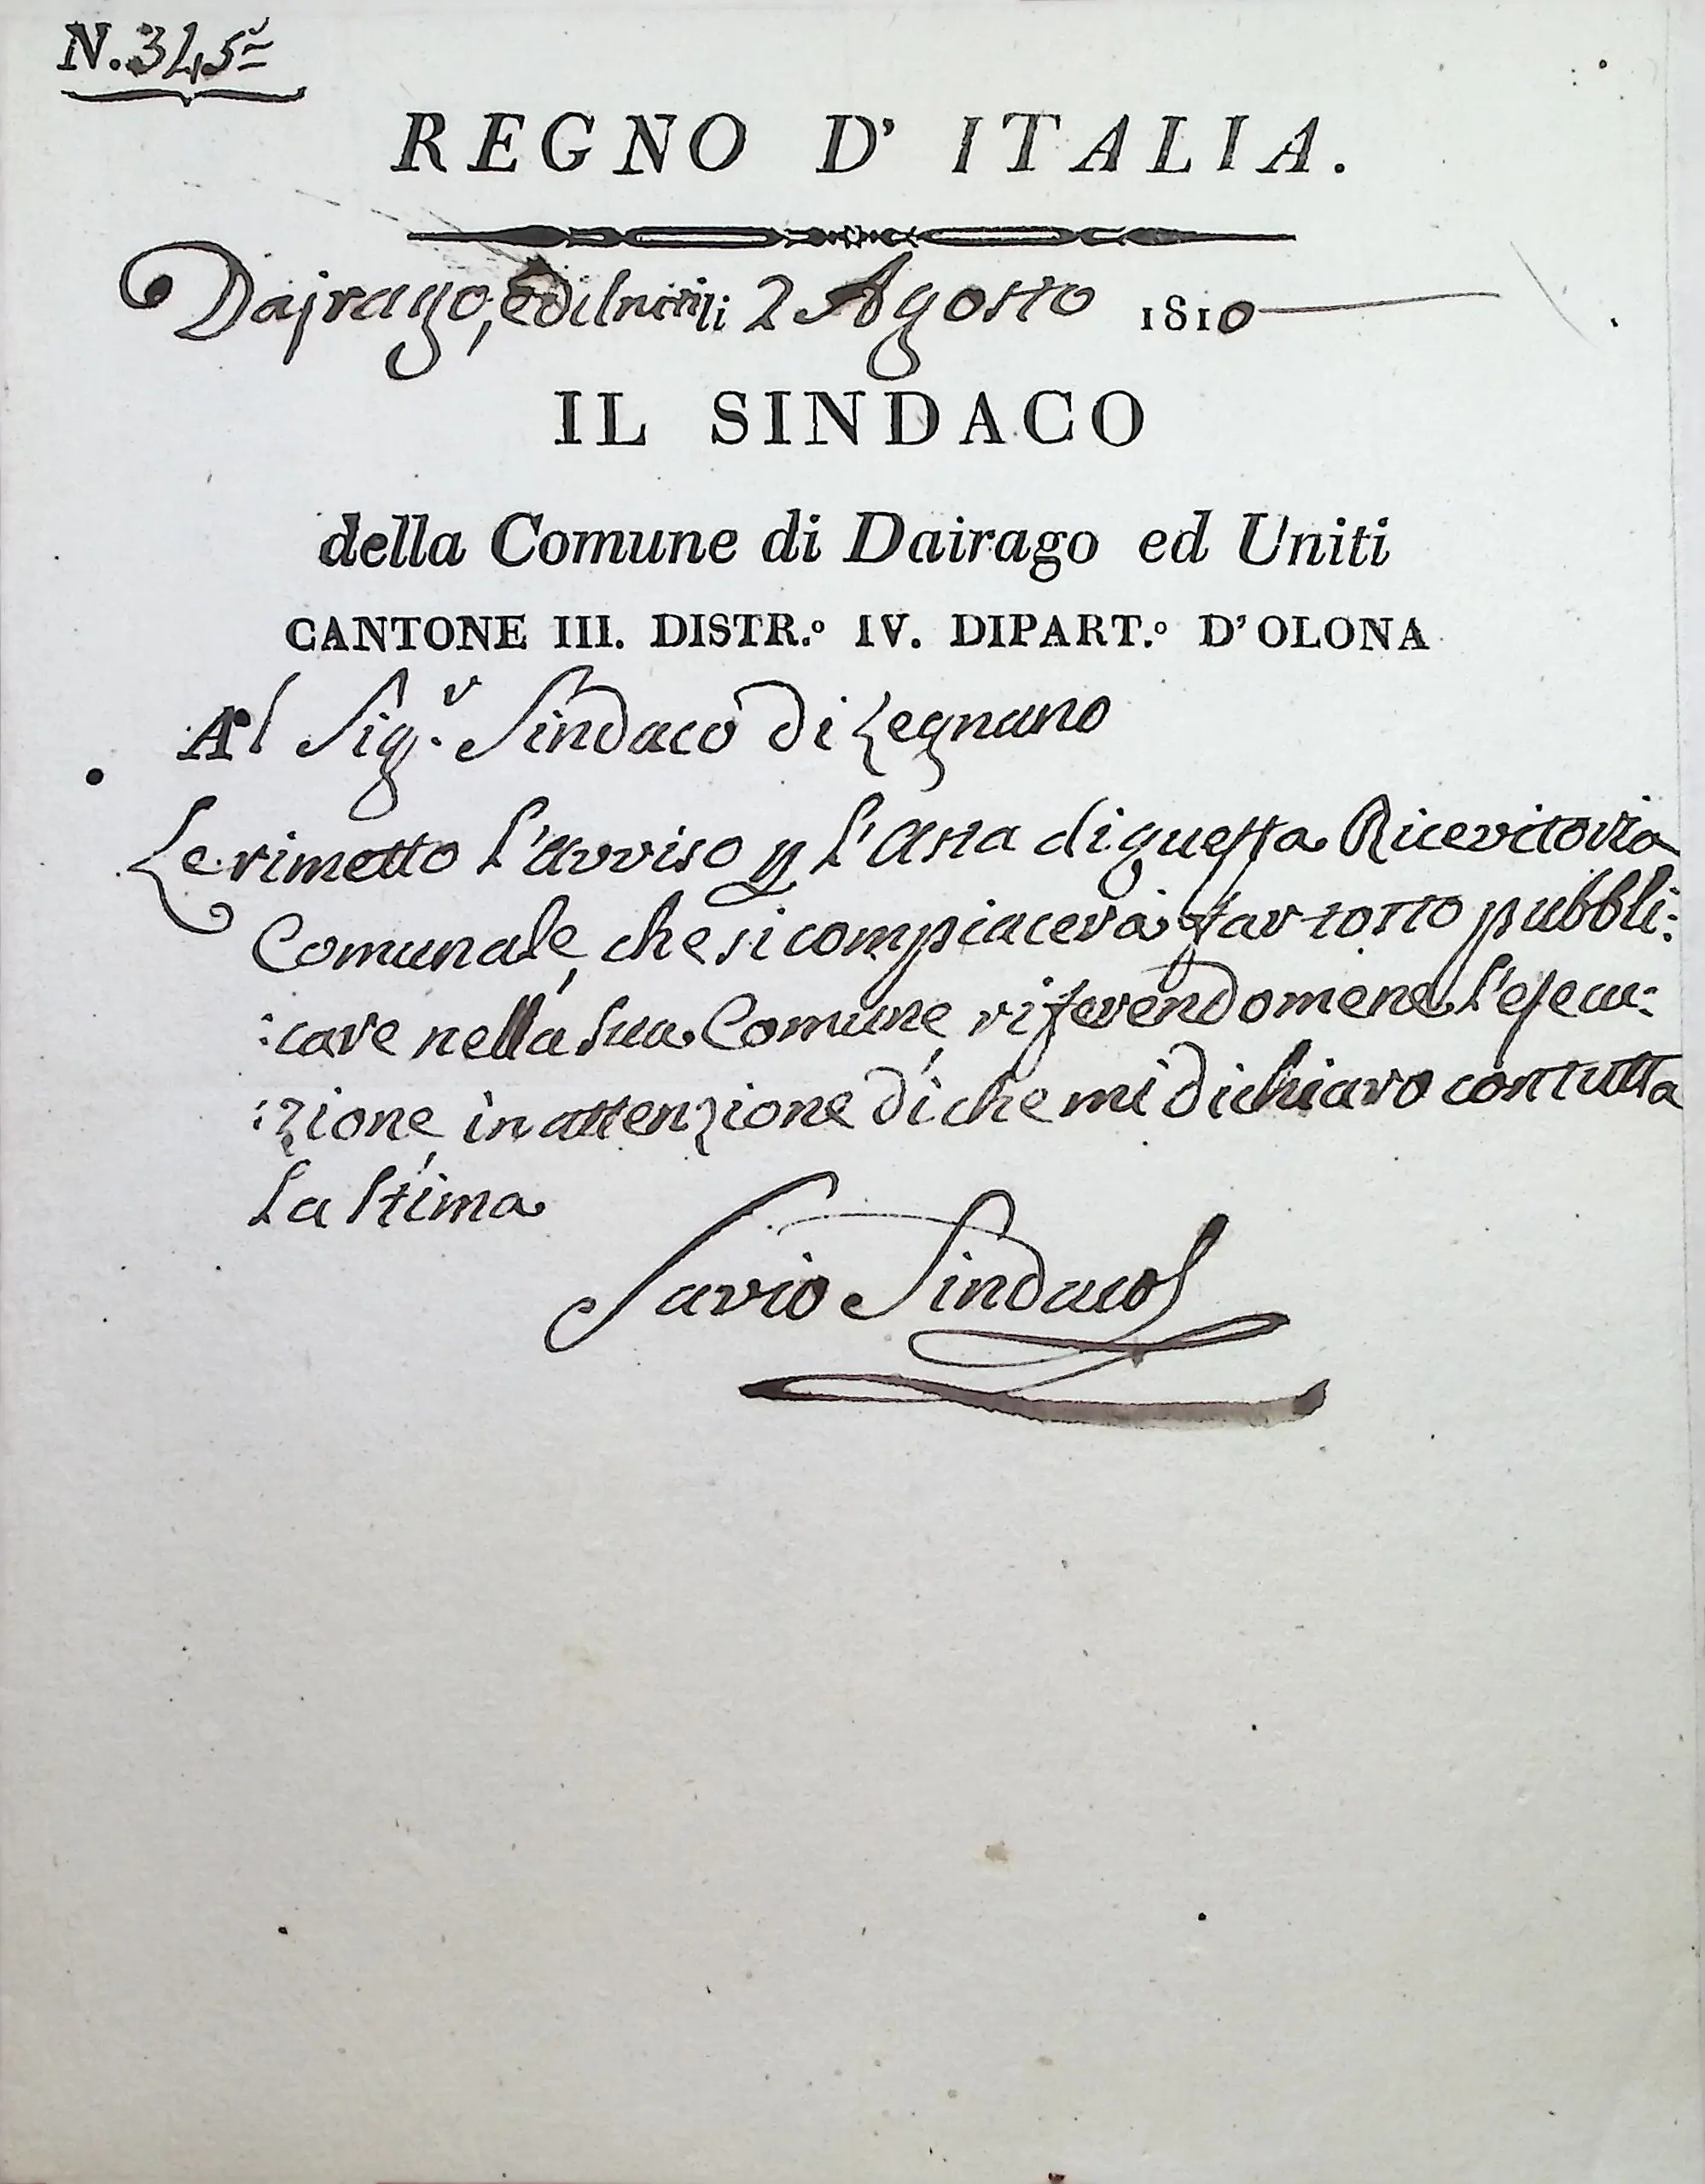 N. 345
REGNO D' ITALIA.
Dajrago, ed Uniti li 2 Agosto 1810
IL SINDACO
della Comune di Dairago ed Uniti
CANTONE III. DISTR.º IV. DIPART.º D'OLONA
Al Sig.r Sindaco di Legnano
Le rimetto l'avviso p l'Asta di questa Ricevitoria
Comunale, che si compiacerà far tosto pubbli:
:care nella sua Comune, riferendomene l'esecu:
:zione, in attenzione di che mi dichiaro con tutta
la stima
Savio Sindaco